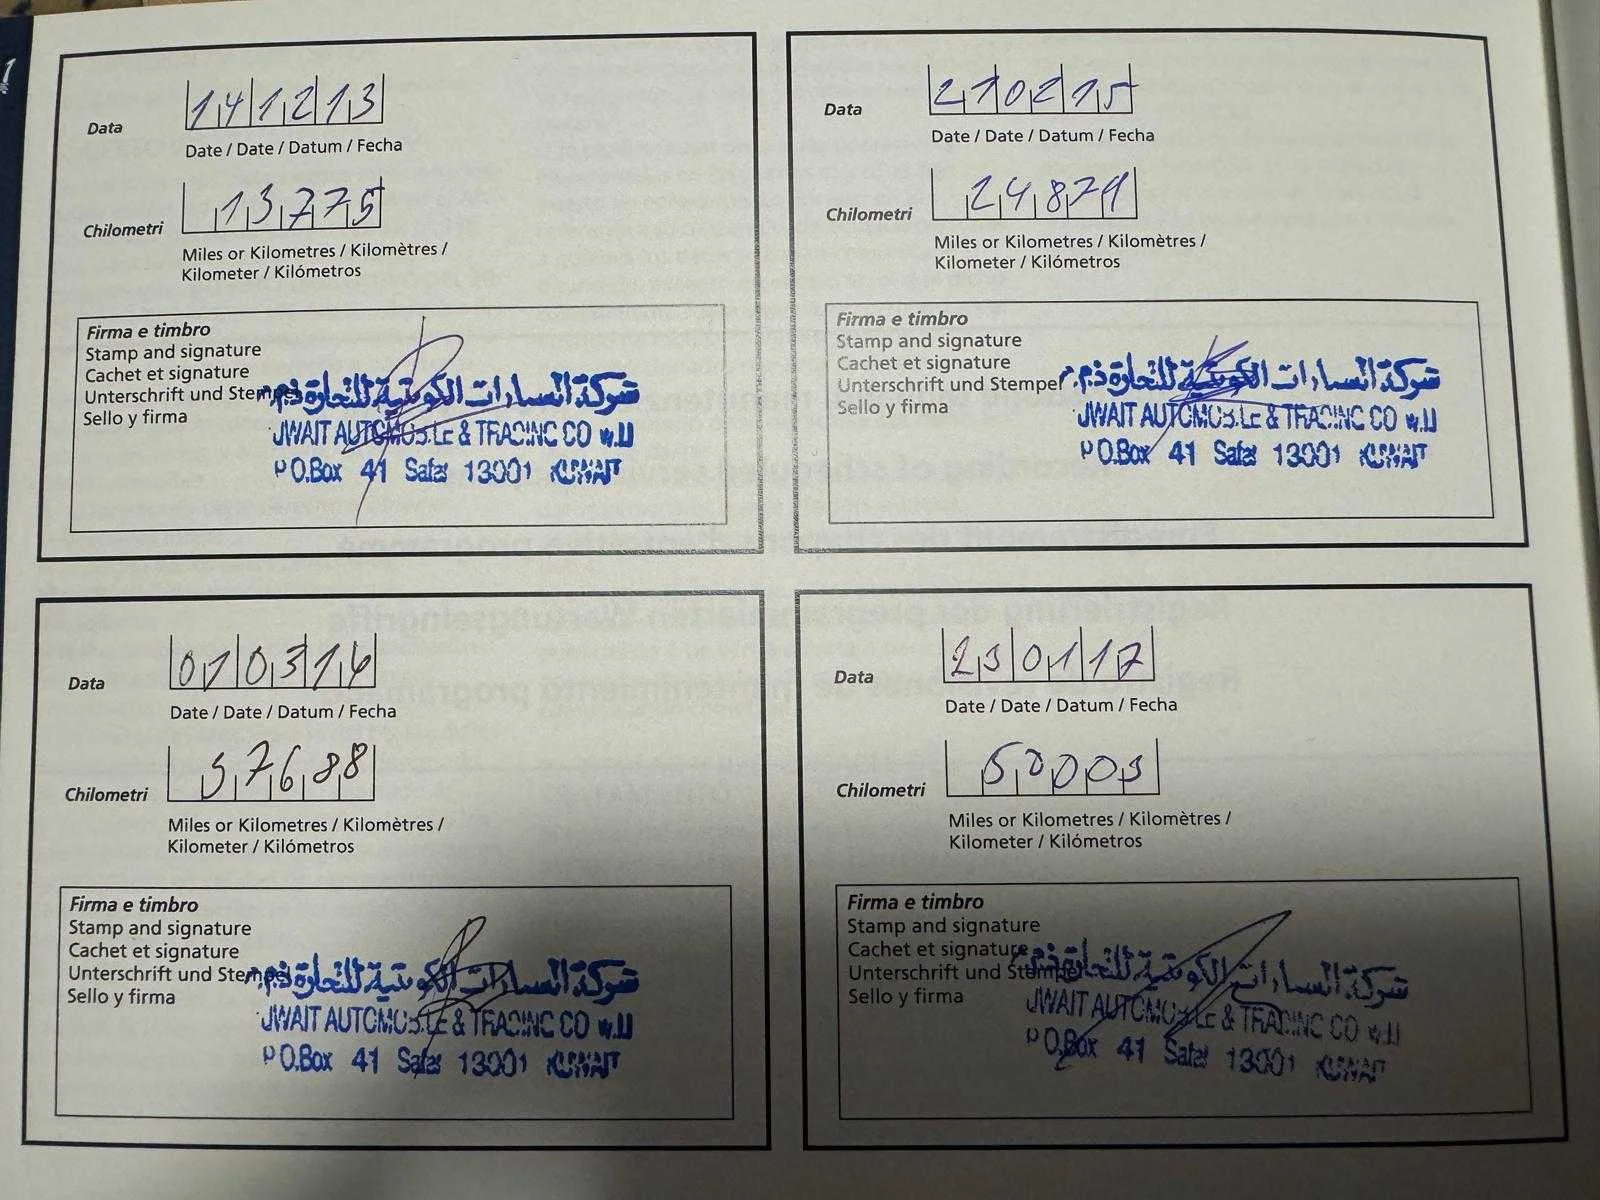 Data
141213
Date / Date / Datum / Fecha
Chilometri
13775
Miles or Kilometres / Kilomètres /
Kilometer / Kilómetros
Firma e timbro
Stamp and signature
Cachet et signature
Unterschrift und Stempel
Sello y firma
شركة السيارات الكويتية للتجارة ذ.م.م
UWAIT AUTOMOBILE & TRADING CO W.L.L
P.O.Box 41 Safat 13001 KUWAIT
Data
210215
Date / Date / Datum / Fecha
Chilometri
24879
Miles or Kilometres / Kilomètres /
Kilometer / Kilómetros
Firma e timbro
Stamp and signature
Cachet et signature
Unterschrift und Stempel
Sello y firma
شركة السيارات الكويتية للتجارة ذ.م.م
UWAIT AUTOMOBILE & TRADING CO W.L.L
P.O.Box 41 Safat 13001 KUWAIT
Data
010316
Date / Date / Datum / Fecha
Chilometri
37688
Miles or Kilometres / Kilomètres /
Kilometer / Kilómetros
Firma e timbro
Stamp and signature
Cachet et signature
Unterschrift und Stempel
Sello y firma
شركة السيارات الكويتية للتجارة ذ.م.م
UWAIT AUTOMOBILE & TRADING CO W.L.L
P.O.Box 41 Safat 13001 KUWAIT
Data
230117
Date / Date / Datum / Fecha
Chilometri
50003
Miles or Kilometres / Kilomètres /
Kilometer / Kilómetros
Firma e timbro
Stamp and signature
Cachet et signature
Unterschrift und Stempel
Sello y firma
شركة السيارات الكويتية للتجارة ذ.م.م
UWAIT AUTOMOBILE & TRADING CO W.L.L
P.O.Box 41 Safat 13001 KUWAIT